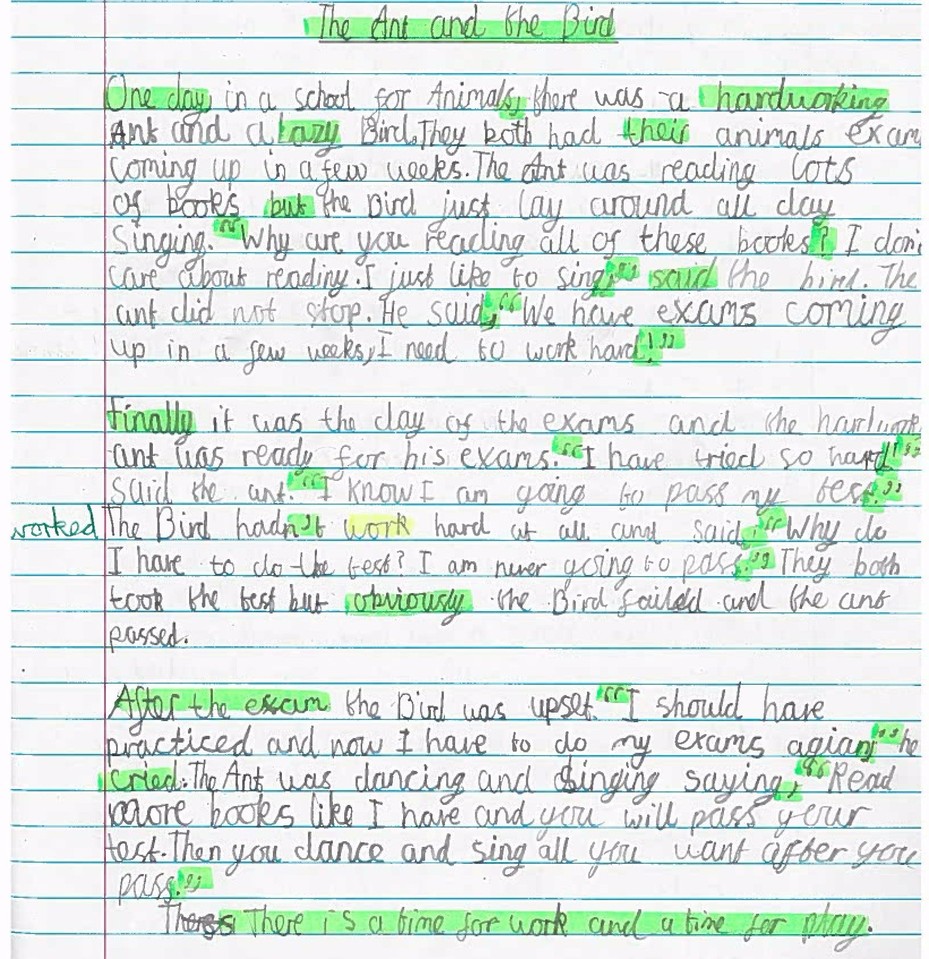 The Ant and the Bird
One day in a school for Animals, there was a hardworking
Ant and a lazy Bird. They both had their animals exam
coming up in a few weeks. The Ant was reading lots
of books but the Bird just lay around all day
Singing. "Why are you reading all of these books? I don
care about reading. I just like to sing," said the bird. The
ant did not stop. He said, "We have exams coming
up in a few weeks, I need to work hard!"
Finally it was the day of the exams and the hardwork
ant was ready for his exams. "I have tried so hard!"
Said the ant. "I know I am going to pass my test."
worked The Bird hadn't work hard at all and said, "Why do
I have to do the test? I am never going to pass." They both
took the test but obviously the Bird failed and the ant
passed.
After the exam the Bird was upset. "I should have
practiced and now I have to do my exams agian," he
cried. The Ant was dancing and Singing saying, "Read
more books like I have and you will pass your
test. Then you dance and sing all you want after you
pass."
There is a time for work and a time for play.